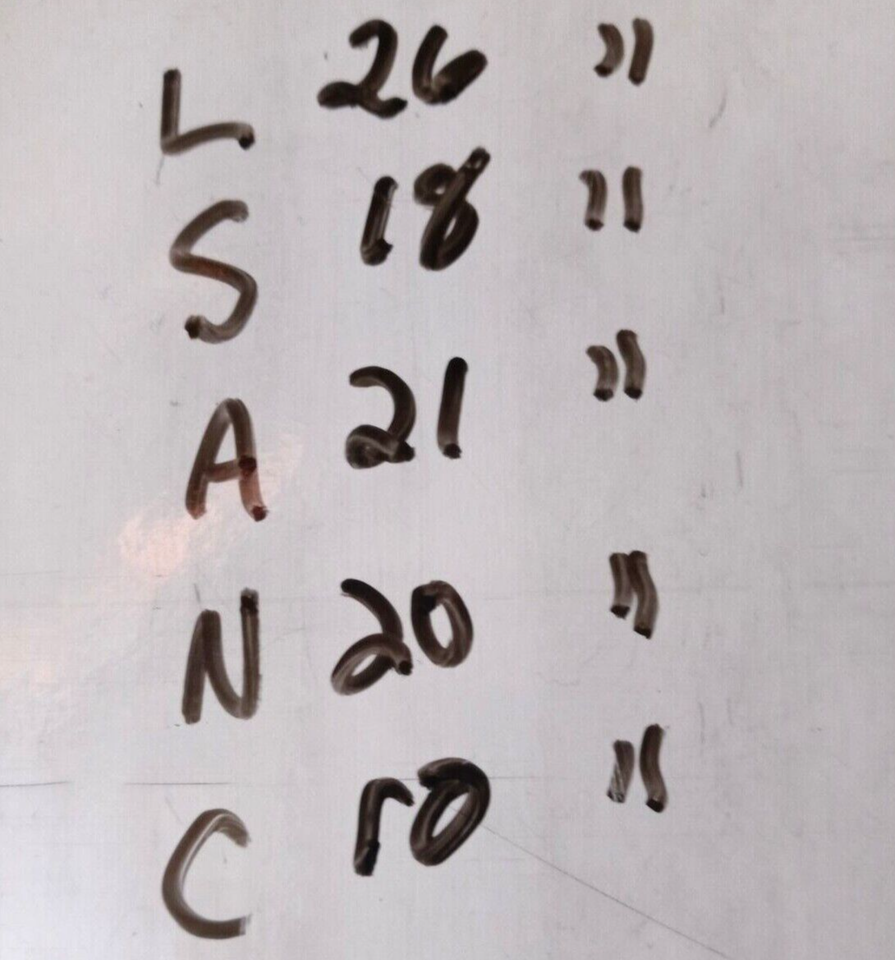 L 26 "
S 18 "
A 21 "
N 20 "
C 10 "